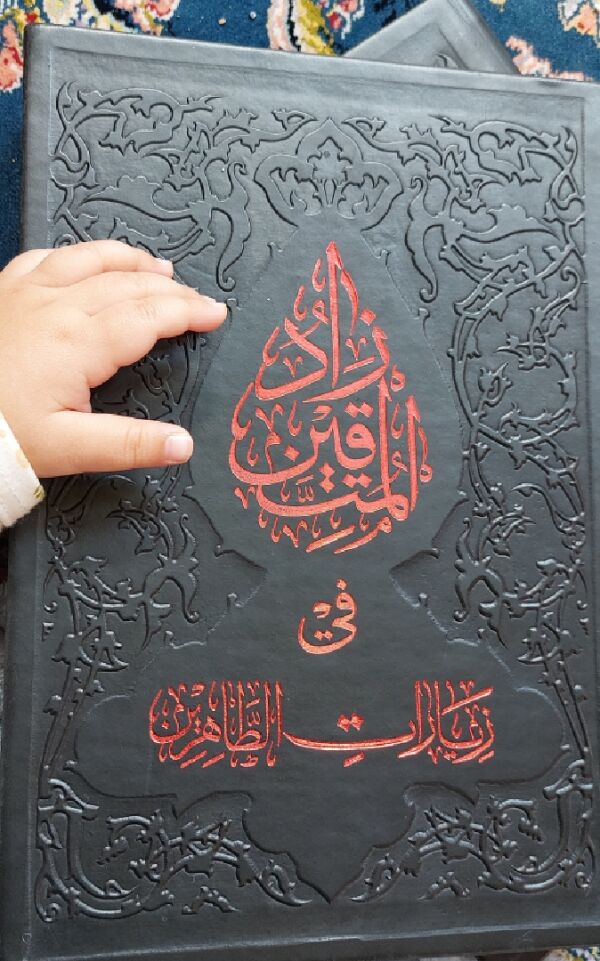 زَادُ
المُتَّقِيْن
فِيْ
زِيَارَاتِ الطَّاهِرِيْن